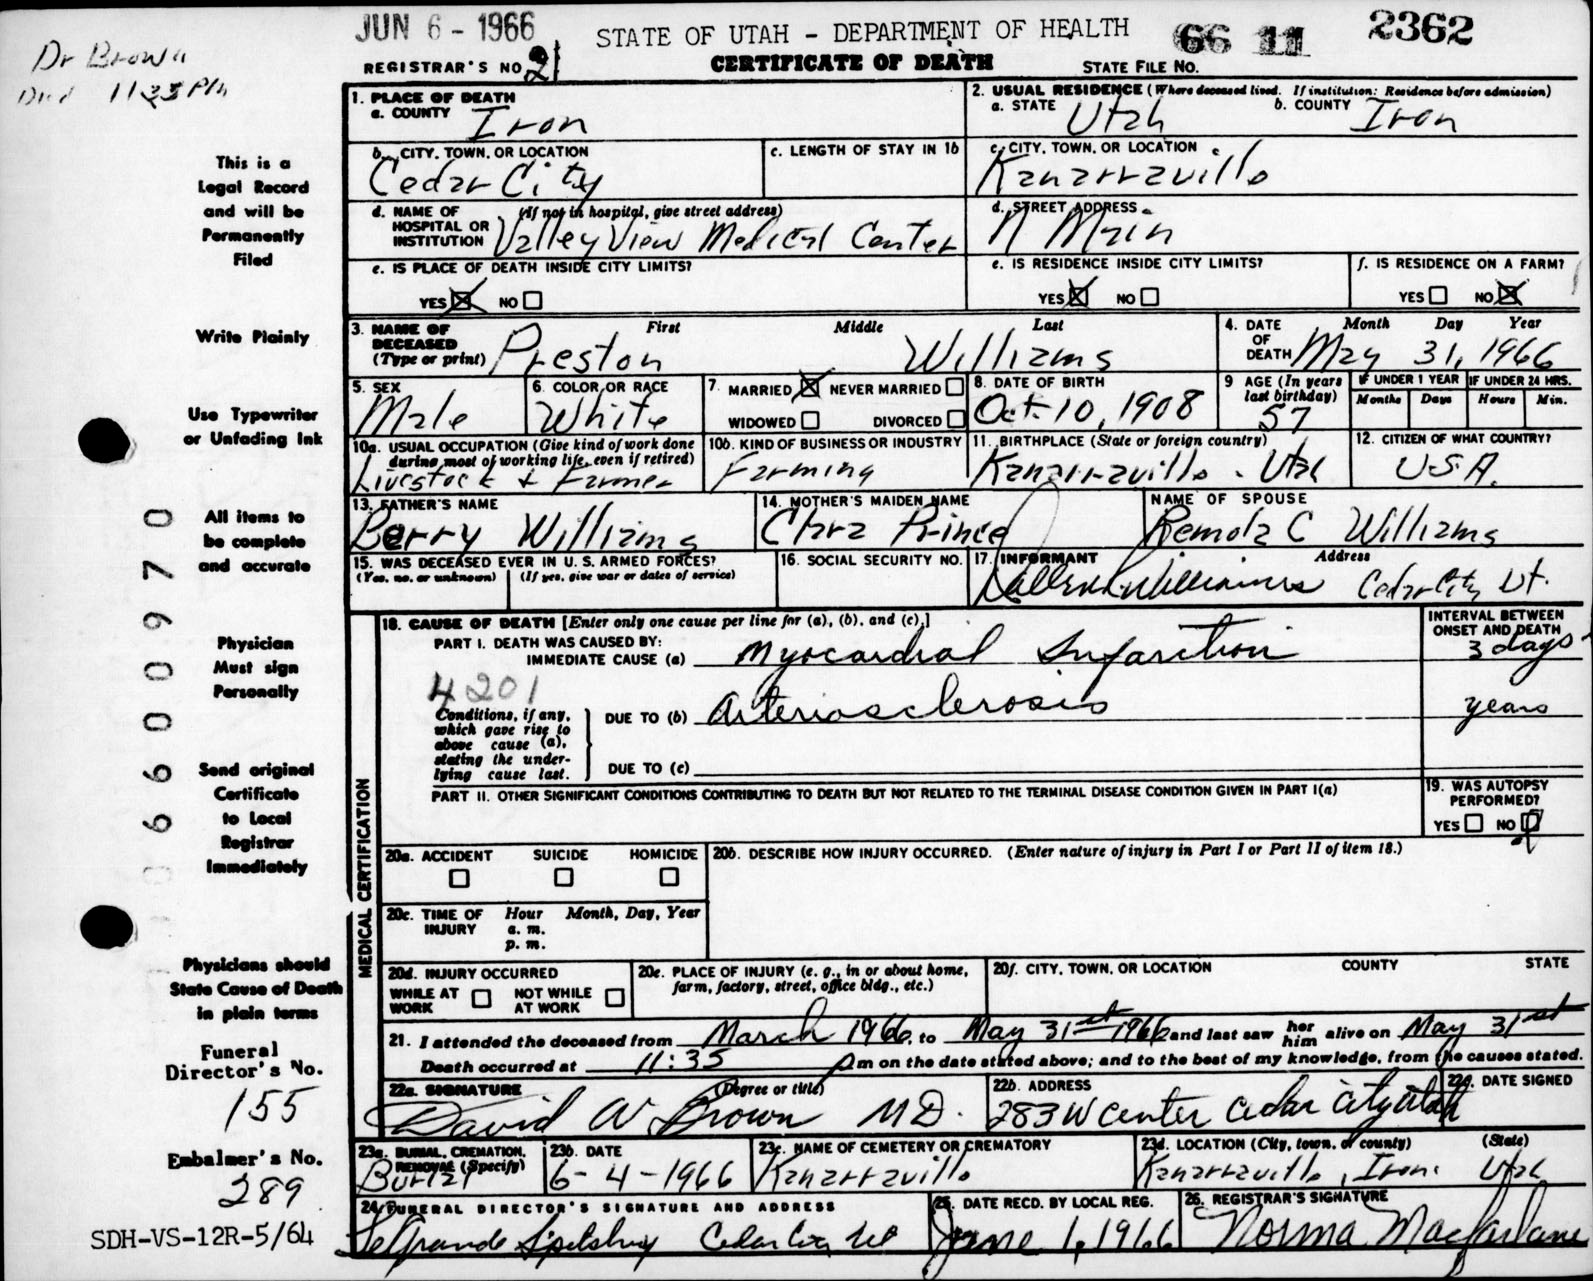 JUN 6 - 1966
STATE OF UTAH - DEPARTMENT OF HEALTH
66 11 2362
Dr Brown
Died 1135 Pm
REGISTRAR'S NO. 21
CERTIFICATE OF DEATH
STATE FILE NO.
This is a
Legal Record
and will be
Permanently
Filed
Write Plainly
Use Typewriter
or Unfading Ink
All items to
be complete
and accurate
Physician
Must sign
Personally
Send original
Certificate
to Local
Registrar
Immediately
Physicians should
State Cause of Death
in plain terms
Funeral
Director's No.
155
Embalmer's No.
289
SDH-VS-12R-5/64
0 6600970
1. PLACE OF DEATH
a. COUNTY Iron
2. USUAL RESIDENCE (Where deceased lived. If institution: Residence before admission)
a. STATE Utah b. COUNTY Iron
b. CITY, TOWN, OR LOCATION
Cedar City
c. LENGTH OF STAY IN 1b
c. CITY, TOWN, OR LOCATION
Kanarraville
d. NAME OF HOSPITAL OR INSTITUTION (If not in hospital, give street address)
Valley View Medical Center
d. STREET ADDRESS
N Main
e. IS PLACE OF DEATH INSIDE CITY LIMITS?
YES ☒ NO ☐
e. IS RESIDENCE INSIDE CITY LIMITS?
YES ☒ NO ☐
f. IS RESIDENCE ON A FARM?
YES ☐ NO ☒
3. NAME OF DECEASED (Type or print) First Middle Last
Preston Williams
4. DATE OF DEATH Month Day Year
May 31, 1966
5. SEX
Male
6. COLOR OR RACE
White
7. MARRIED ☒ NEVER MARRIED ☐
WIDOWED ☐ DIVORCED ☐
8. DATE OF BIRTH
Oct-10, 1908
9 AGE (In years last birthday)
57
IF UNDER 1 YEAR
Months Days
IF UNDER 24 HRS.
Hours Min.
10a. USUAL OCCUPATION (Give kind of work done during most of working life, even if retired)
Livestock & Farmer
10b. KIND OF BUSINESS OR INDUSTRY
Farming
11. BIRTHPLACE (State or foreign country)
Kanarraville - Utah
12. CITIZEN OF WHAT COUNTRY?
U.S.A.
13. FATHER'S NAME
Berry Williams
14. MOTHER'S MAIDEN NAME
Clara Prince
NAME OF SPOUSE
Remola C Williams
15. WAS DECEASED EVER IN U. S. ARMED FORCES?
(Yes, no, or unknown) (If yes, give war or dates of service)
16. SOCIAL SECURITY NO.
17. INFORMANT Address
Williams Cedar City Ut.
MEDICAL CERTIFICATION
18. CAUSE OF DEATH [Enter only one cause per line for (a), (b), and (c).]
INTERVAL BETWEEN ONSET AND DEATH
PART I. DEATH WAS CAUSED BY:
IMMEDIATE CAUSE (a) Myocardial Infarction 3 days
4201
Conditions, if any, which gave rise to above cause (a), stating the underlying cause last.
DUE TO (b) Arteriosclerosis years
DUE TO (c)
PART II. OTHER SIGNIFICANT CONDITIONS CONTRIBUTING TO DEATH BUT NOT RELATED TO THE TERMINAL DISEASE CONDITION GIVEN IN PART I(a)
19. WAS AUTOPSY PERFORMED?
YES ☐ NO ☒
20a. ACCIDENT SUICIDE HOMICIDE
☐ ☐ ☐
20b. DESCRIBE HOW INJURY OCCURRED. (Enter nature of injury in Part I or Part II of item 18.)
20c. TIME OF INJURY Hour Month, Day, Year
a. m.
p. m.
20d. INJURY OCCURRED
WHILE AT WORK ☐ NOT WHILE AT WORK ☐
20e. PLACE OF INJURY (e. g., in or about home, farm, factory, street, office bldg., etc.)
20f. CITY, TOWN, OR LOCATION COUNTY STATE
21. I attended the deceased from March 1966 to May 31st 1966 and last saw her him alive on May 31st
Death occurred at 11:35 Pm on the date stated above; and to the best of my knowledge, from the causes stated.
22a. SIGNATURE (Degree or title)
David W Brown MD.
22b. ADDRESS
283 W Center Cedar City Utah
22c. DATE SIGNED
23a. BURIAL, CREMATION, REMOVAL (Specify)
Burial
23b. DATE
6-4-1966
23c. NAME OF CEMETERY OR CREMATORY
Kanarraville
23d. LOCATION (City, town, or county) (State)
Kanarraville, Iron, Utah
24. FUNERAL DIRECTOR'S SIGNATURE AND ADDRESS
LeGrande Spilsbury Cedar City Ut
25. DATE RECD. BY LOCAL REG.
June 1, 1966
26. REGISTRAR'S SIGNATURE
Norma Macfarlane